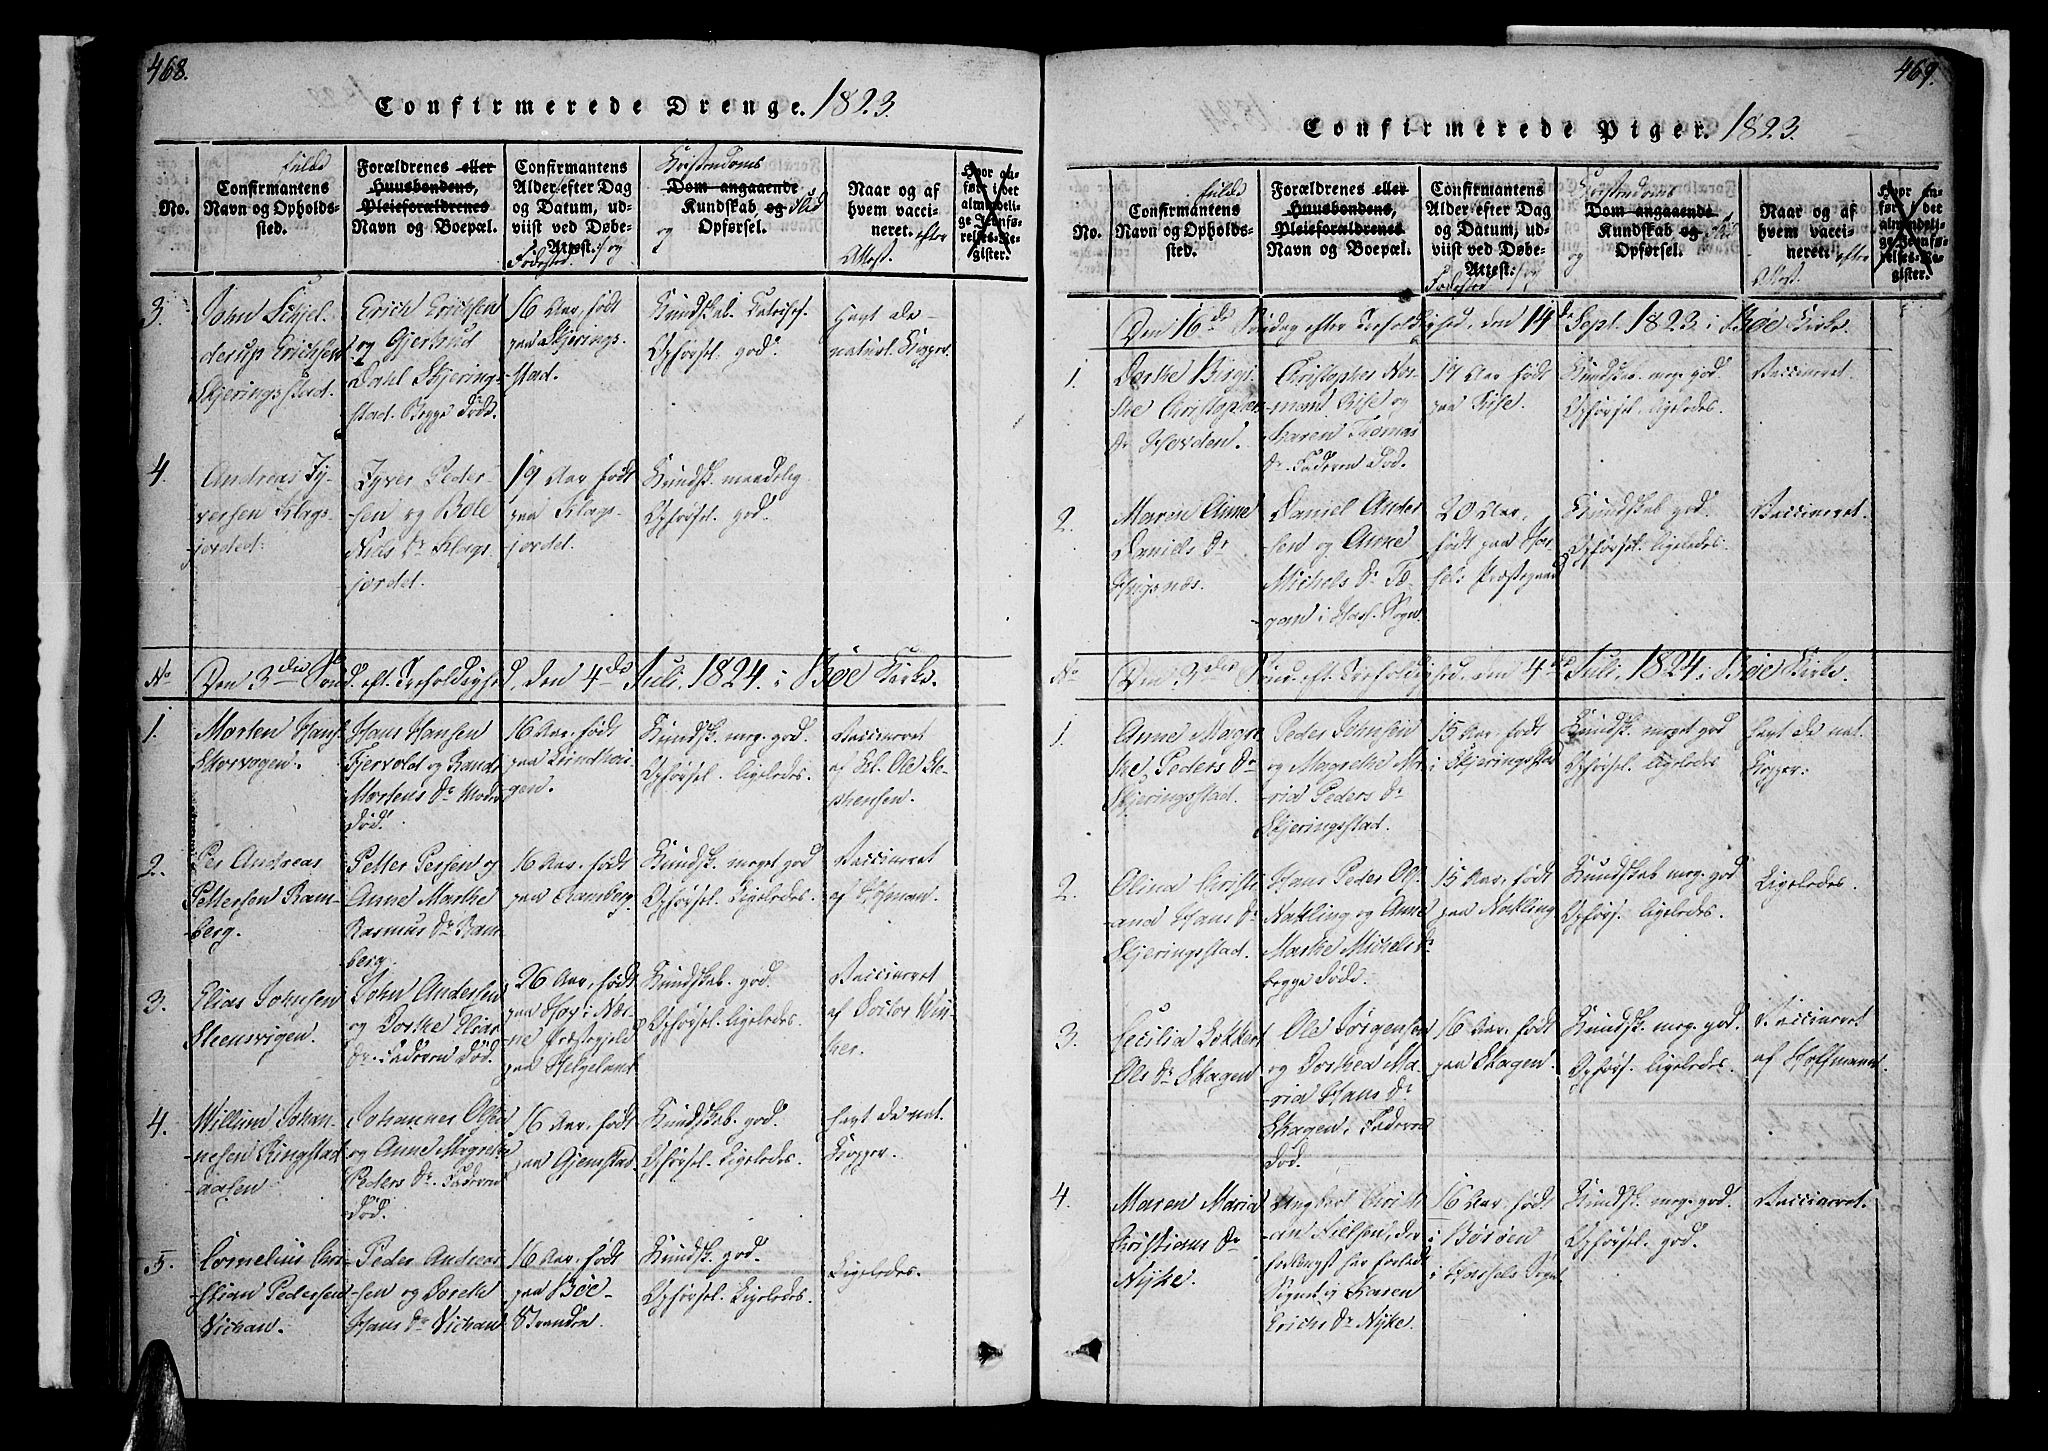 468.
Confirmerede Drenge. 1823.
No.
fulde
Confirmantens
Navn og Opholds-
sted.
Forældrenes eller
Huusbondens,
Pleieforældrenes
Navn og Boepæl.
Confirmantens
Alder efter Dag
og Datum, ud-
viist ved Døbe-
Attest. og
Fødested.
Kristendoms
Dom angaaende
Kundskab og Flid
og Opførsel.
Naar og af
hvem vacci-
neret. efter
Attest.
Hvor an-
ført i det
almindeli-
ge Jevnfø-
relses-Re-
gister.
3.
John Schjel-
derup Erichsen
Skjeringsstad.
Erich Erichsen
og Gjertrud
Dahl Skjering-
stad. Begge døde.
16 Aar, født
paa Skjerings-
stad.
Kundskab.
Opførsel god.
havt de
naturl. Kopper.
4.
Andreas Jy-
versen Klags-
jordet.
Jyver Peder-
sen og Bele
Niels Dr Klags-
jordet.
19 Aar født
paa Klags-
jordet.
Kundsk. maadelig
Opførsel. god.
No Den 3den Sønd. eft. Trefoldighed, den 4de Juli, 1824. i Bøe Kirke.
1.
Morten Hans.
Skorvogen.
Hans Hansen
Fjervold og
Mortens Dr Moder
død.
16 Aar, født
paa
gen.
Kundsk. meg. god.
Opførsel. ligeledes.
Vaccineret
af Ole Ste-
phensen.
2.
Per Andreas
Pettersen Ram-
berg.
Petter Persen og
Anne Marthe
Rasmus Dr Ram-
berg.
16 Aar, født
paa Ramberg.
Kundsk. meget god
Opførsel. Ligeledes.
Vaccineret
af Hofman.
3.
Elias Johnsen
Steensvigen.
John Andersen
og Dorthe Elias
Dr. Faderen død.
26 Aar, født
paa Høy i Næs-
ne Præstegjeld
paa Helgeland
Kundskab. god.
Opførsel. ligeledes.
Vaccineret
af Doctor Win-
ther.
4.
Willum Johan-
nesen Ringstad
aasen
Johannes Olsen
og Anne Magrethe
Peders Dr. Faderen
død.
16 Aar, født
paa Gjemstad.
Kundskab. god.
Opførsel. Ligeledes.
havt de nat.
Kopper.
5.
Cornelius Chri-
stian Pedersen
Vichan.
Peder Andreas
sen og Dorthe
Hans Dr Vichan
16 Aar, født
paa Bøe-
Strandra
Kundsk. god.
Opførsel. Ligeledes.
Ligeledes.
469.
Confirmerede Piger. 1823.
No.
fulde
Confirmantens
Navn og Opholds-
sted.
Forældrenes eller
Huusbondens,
Pleieforældrenes
Navn og Boepæl.
Confirmantens
Alder efter Dag
og Datum, ud-
viist ved Døbe-
Attest. og
Fødested
Kristendoms
Dom angaaende
Kundskab og Flid
og Opførsel.
Naar og af
hvem vacci-
neret. efter
Attest.
Hvor an-
ført i det
almindeli-
ge Jevnfø-
relses-Re-
gister.
Den 16de Søndag efter Trefoldighed, den 14de Sept. 1823 i Bøe Kirke
1.
Dorthe Birgi-
the Christopher
Dr Horden.
Christopher Nor-
mand Rise og
Karen Thomas
Dr. Faderen død.
19 Aar født
paa Rise.
Kundskab. meg. god
Opførsel. ligeledes.
Vaccineret.
2.
Maren Anne
Daniels Dr
Daniel Ander
sen og Anne
Michels Dr
i Hass. Sogn.
20 Aar,
født paa Has-
sel: Præstegaard
Kundskab god.
Opførsel. ligeledes.
Vaccineret.
No Den 3die Sønd. eft. Trefoldighed, den 4de Juli, 1824 i Bøe Kirke.
1.
Anne Magre
the Peders Dr
Skjeringsstad.
Peder Johnsen
og Magreth Ma-
ria Peders Dr
Skjeringsstad.
15 Aar, født
i Skjeringsstad
Kundsk. meget god
Opførsel. ligeledes
havt de nat.
Kopper.
2.
Olina Christi-
ana Hans Dr
Skjeringsstad.
Hans Peder Ols.
Nakling og Anne
Marthe Michels Dr.
begge døde.
15 Aar, født
paa Nakling
Kundskab meg. god
Opførs. ligeledes.
Ligeledes.
3.
Cecilia
Ols Dr Skagen
Ole Jørgensen
og Dorthea Ma-
ria Hans Dr
Skagen, Faderen
død.
16 Aar, født
paa Skagen.
Kundsk. meg. god.
Opførs. ligeledes.
Vaccineret
af Hoffmann.
4.
Maren Maria
Christians Dr
Nyke.
Ungkarl Christi-
an Nielsen, der
har forladt
Sognet og Karen
Erichs Dr Nyke.
16 Aar, født
i Børøen
i Hassels Sogn
Kundsk. meg. god.
Opførsel. god.
Vaccineret.